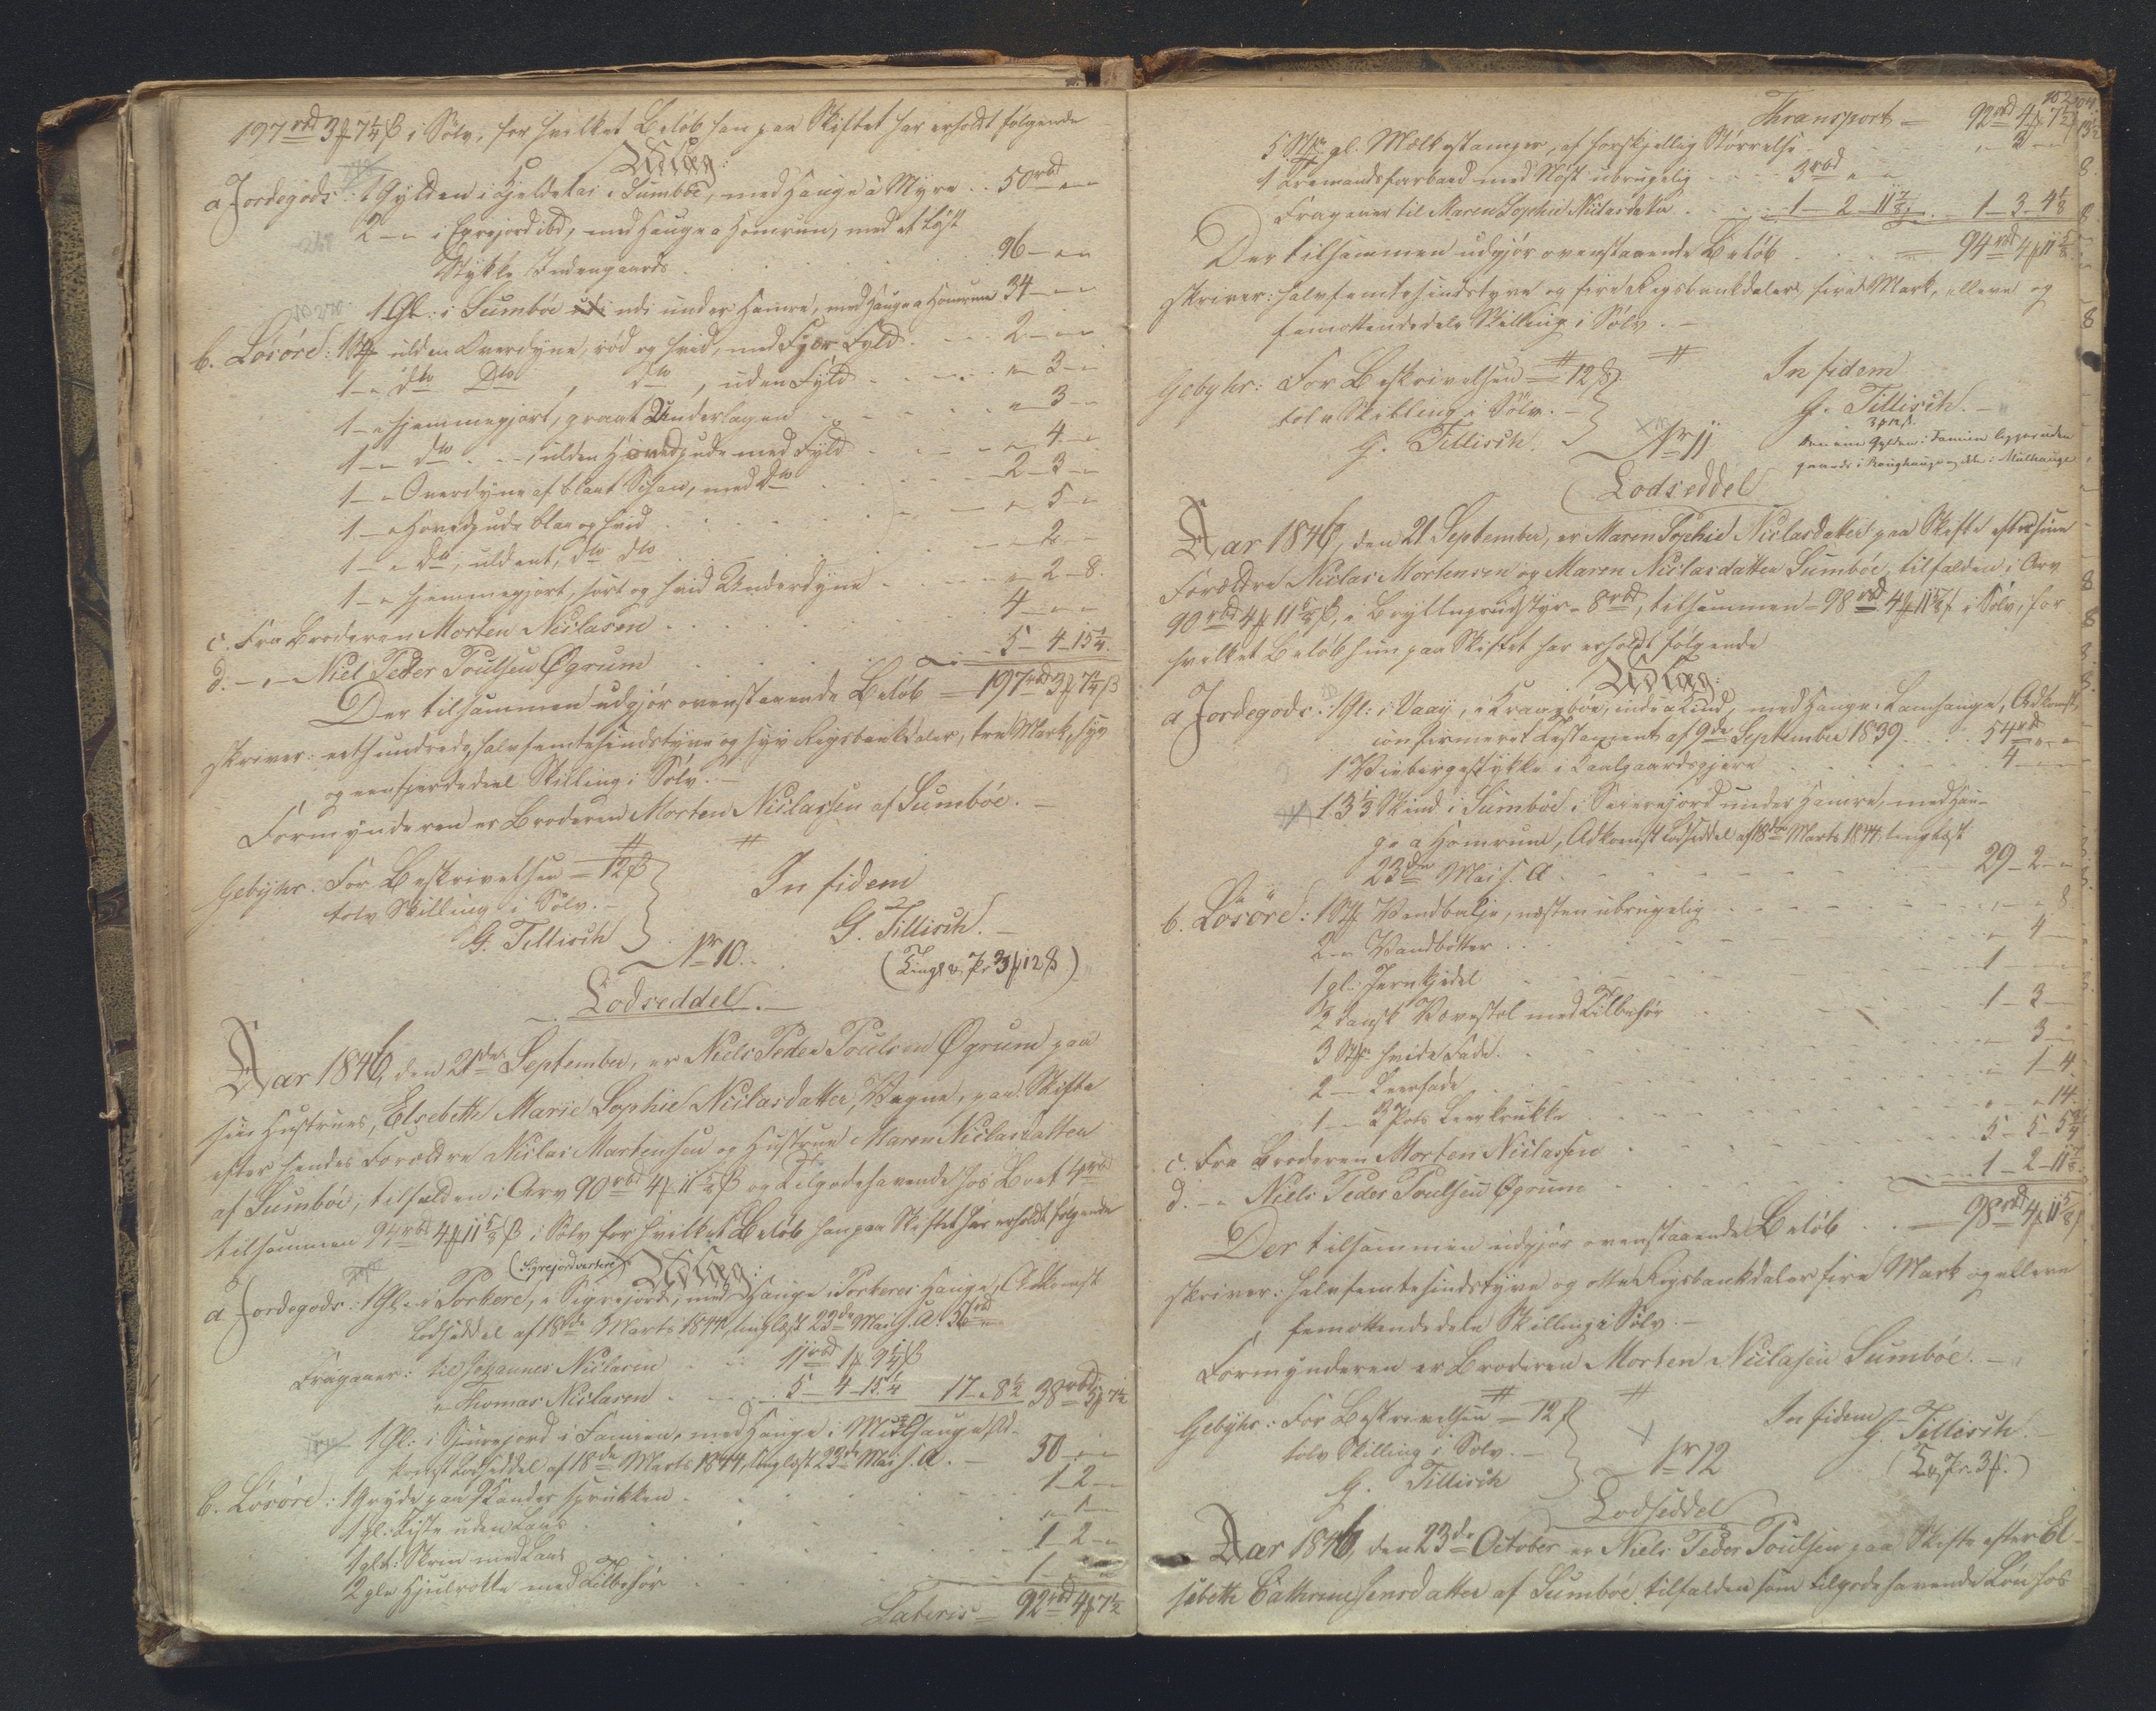 197 rbd 3 ℳ 7 1/4 β i Sølv, for hvilket Beløb han paa Skiftet har erholdt følgende
Udlæg:
a Jordegods: 1 Gylden i Sumböe, med Hauge i Myre .. 50 rbd " "
2 - " i ibd, med Hauge a Homrum, med et lidet
Stykke Indengaards . . . 96 - " "
1 Gl: i Sumböe inde under Hamre, med Hauge a Homrum 34 - " "
b. Løsøre: 1 Stk ulden Overdyne, rød og hvid, med Fyld . . 2 - " "
1 - " dto Dto , dto , uden Fyld . . . " - 3 - "
1 - " hjemmegjort, graat Underlagen . . . " - 3 - "
1 - " dto . . ulden Hovedpude med Fyld . . . " 4 - "
1 - " Overdyne af blaat , med Dto . . . 2 - 3 - "
1 - " Hovedpude blaa og hvid . . . " - 5 - "
1 - " dto, uldent, dto dto . . . " - 2 - "
1 - " hjemmegjort, sort og hvid Underdyne . . . " - 2 - 8.
c. Fra Broderen Morten Niclasen . . . 4 - " "
d. - " - Niel Peder Poulsen Øgrum . . . 5 - 4 - 15 1/4.
Der tilsammen udgjør ovenstaaende Beløb = 197 rbd 3 ℳ 7 1/4 β
skriver: eethundrede halvfemtesindstyve og syv Rigsbankdaler, tre Mark, syv
og een fjerdedeel Skilling i Sølv. -
Formynderen er Broderen Morten Niclassen af Sumböe. -
Gebyhr. For Beskrivelsen = 12 β
tolv Skilling i Sølv. -
G. Tillisch
In fidem
G. Tillisch. -
No 10.
(Tingl: 3 ℳ 12 β)
Lodseddel. -
Aar 1846, den 21de September, er Niels Peder Poulsen Øgrum paa
sin Hustrues, Elsebeth Marie Sophie Niclasdatter, Vegne, paa Skifte
efter hendes Forældre Niclas Mortensen og Hustrue Maren Niclasdatter
af Sumböe, tilfalden i Arv 90 rbd 4 ℳ 11 5/8 β og Tilgodehavende hos Boet 4 rbd
tilsammen 94 rbd 4 ℳ 11 5/8 β i Sølv for hvilket Beløb han paa Skiftet har erholdt følgende
Udlæg:
a Jordegods: 1 Gl. i Porkere, i Sigrejord, med Hauge i Porkeres Hauge, Adkomst
Lodseddel af 18de Marts 1844, tinglæst 23de Mai s. A. 56 rbd
Fragaaer: til Johannes Niclasen . . 11 rbd 1 ℳ 9 1/4 β
" Thomas Niclasen . . 5 - 4 - 15 1/4 17 - " 8 1/2 38 rbd 5 ℳ 7 1/2
1 Gl: i Sjurejord i Famien, med Hauge i Mulhauge Ad-
komst Lodseddel af 18de Marts 1844, tinglæst 23de Mai s. A. - 50 - " "
b. Løsøre: 1 Gryde paa Kander sprukken . . . 1 - 2 - "
1 gl: Kiste uden Laas . . . " - 1 - "
1 glt: Skrin med Laas . . . 1 - 2 - "
2 gle Hjulrokke med Tilbehør . . . 1 -
Lateris = 92 rbd 4 ℳ 7 1/2
Thransport = 92 rbd 4 ℳ 7 1/2
5 Stkr gl. Melkestamper, af forskjellig Størrelse . . . " 3 - "
1 Tremandsfarbaad med Nøst ubrugelig . . . 3 rbd " "
Fragaaer til Maren Sophie Niclasdatter . . . 1 - 2 - 11 7/8 1 - 3 - 4 1/8
Der tilsammen udgjør ovenstaaende Beløb . . . = 94 rbd 4 ℳ 11 5/8
skriver: halvfemtesindstyve og fire Rigsbankdaler, fire Mark, elleve og
femottendedele Skilling i Sølv. -
Gebyhr: For Beskrivelsen = 12 β
tolv Skilling i Sølv. -
G. Tillisch
In fidem
G. Tillisch. -
No 11
Den ene Gylden i Famien ligger uden
gaards i og i Mulhauge
Lodseddel
Aar 1846, den 21 September, er Maren Sophie Niclasdatter paa Skifte efter sine
Forældre Niclas Mortensen og Maren Niclasdatter Sumböe, tilfalden i Arv
90 rbd 4 ℳ 11 5/8 β, i Bryllupsudstyr = 8 rbd, tilsammen = 98 rbd 4 ℳ 11 5/8 β i Sølv, for
hvilket Beløb hun paa Skiftet har erholdt følgende
Udlæg:
a Jordegods: 1 Gl: i Vaag, i Kraagböe, , med Hauge i Lamhauge, Adkomst
confirmeret Testament af 9de September 1839 . . . 54 rbd " "
1 i Kaalgaardsgjere . . . 4 - " "
13 1/3 Skind i Sumböe i under Hamre, med Hau-
ge a Homrum, Adkomst Lodseddel af 18de Marts 1844, tinglæst
23de Mai s. A . . . 29 - 2 - "
b. Løsøre: 1 Stk Vandbalje, næsten ubrugelig . . . " - " 8
2 - " Vandbøtter . . . " 4 -
1 gl: Jernkjedel . . . 1 - " "
2 dansk Vævestol med Tilbehør . . . 1 - 3 -
3 Stkr hvide Fade . . . " 3 -
2 - Leerfade . . . " 1 - 4
1 - Pots Leerkrukke . . . " - " 14.
c. Fra Broderen Morten Niclassen . . . 5 - 5 - 5 3/4
d. - " Niels Peder Poulsen Øgrum . . . 1 - 2 - 11 7/8
Der tilsammen udgjør ovenstaaende Beløb . . = 98 rbd 4 ℳ 11 5/8 β
skriver: halvfemtesindstyve og otte Rigsbankdaler fire Mark og elleve
femottendedele Skilling i Sølv. -
Formynderen er Broderen Morten Niclasen Sumböe. -
Gebyhr: For Beskrivelsen = 12 β
tolv Skilling i Sølv. -
G. Tillisch
In fidem
G. Tillisch.
No 12
Lodseddel
Aar 1846, den 23de October er Niels Peder Poulsen paa Skifte efter El-
sebeth Cathrine Jensdatter af Sumböe, tilfalden som tilgodehavende Løn hos